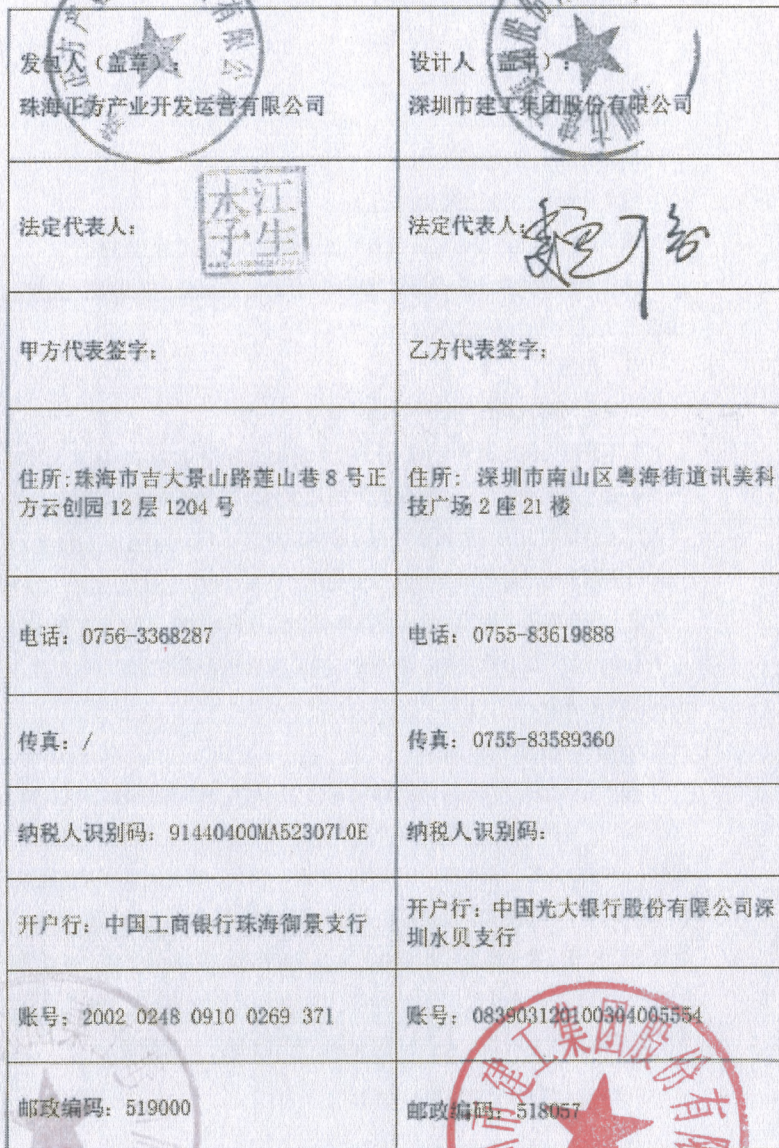 发包人（盖章）：
珠海正方产业开发运营有限公司
设计人（盖章）：
深圳市建工集团股份有限公司
法定代表人：
江生
木子
法定代表人：
甲方代表签字：
乙方代表签字：
住所：珠海市吉大景山路莲山巷 8 号正
方云创园 12 层 1204 号
住所： 深圳市南山区粤海街道讯美科
技广场 2 座 21 楼
电话：0756-3368287
电话：0755-83619888
传真：/
传真：0755-83589360
纳税人识别码：91440400MA52307L0E
纳税人识别码：
开户行：中国工商银行珠海御景支行
开户行：中国光大银行股份有限公司深
圳水贝支行
账号：2002 0248 0910 0269 371
账号：083903120100304005554
邮政编码：519000
邮政编码：518057
市建工集团股份有